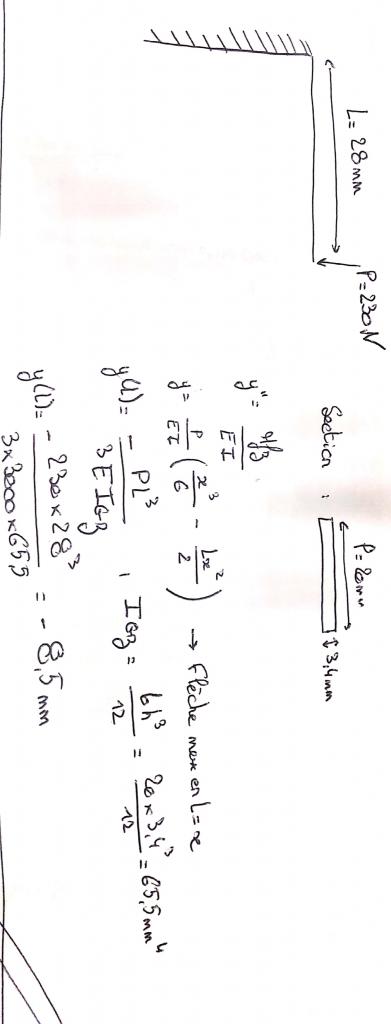 L = 28 mm
P = 230N
Section :
P = 20mm
3,4mm
y" = Mfz / EI
y = P/EI (x³/6 - Lx²/2) → Flèche max en L = x
y(L) = - PL³ / 3EIGz , IGz = bh³/12 = 20 x 3,4³ / 12 = 65,5 mm⁴
y(L) = - 230 x 28³ / 3 x 3000 x 655 = - 8,5 mm